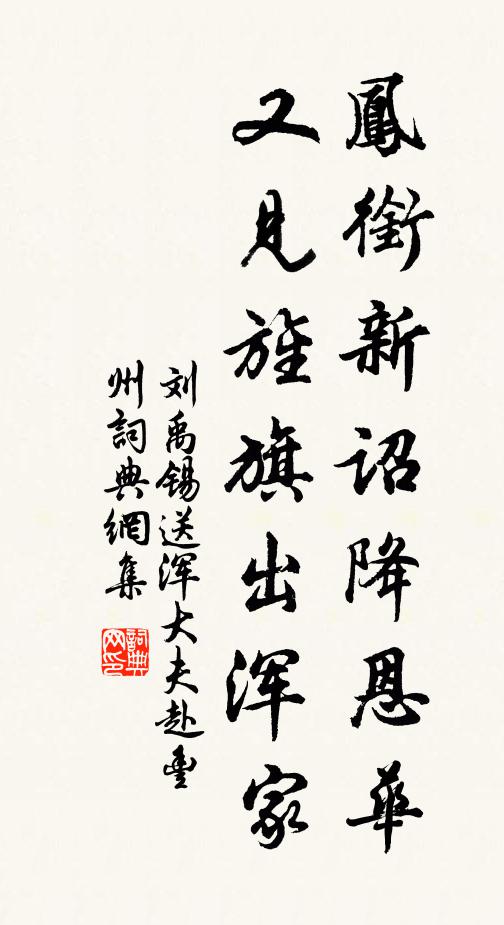 鳳銜新詔降恩華
又見旌旗出浑家
刘禹锡送浑大夫赴豊
州詞典網集
詞典
网印